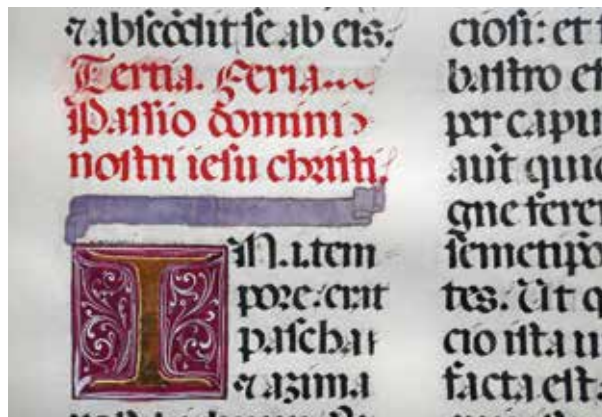 ⁊ abſcõdit ſe ab eis.
Tertia. Feria
Paſſio domini
noſtri ieſu chriſti.
IN. i. tem
pore. erat
paſcha
⁊ azima
cioſi: et
baſtro
per capu
aut̃ qui
gne fere
ſemetipſ
tes. Ut q
cio iſta u
facta eſt.